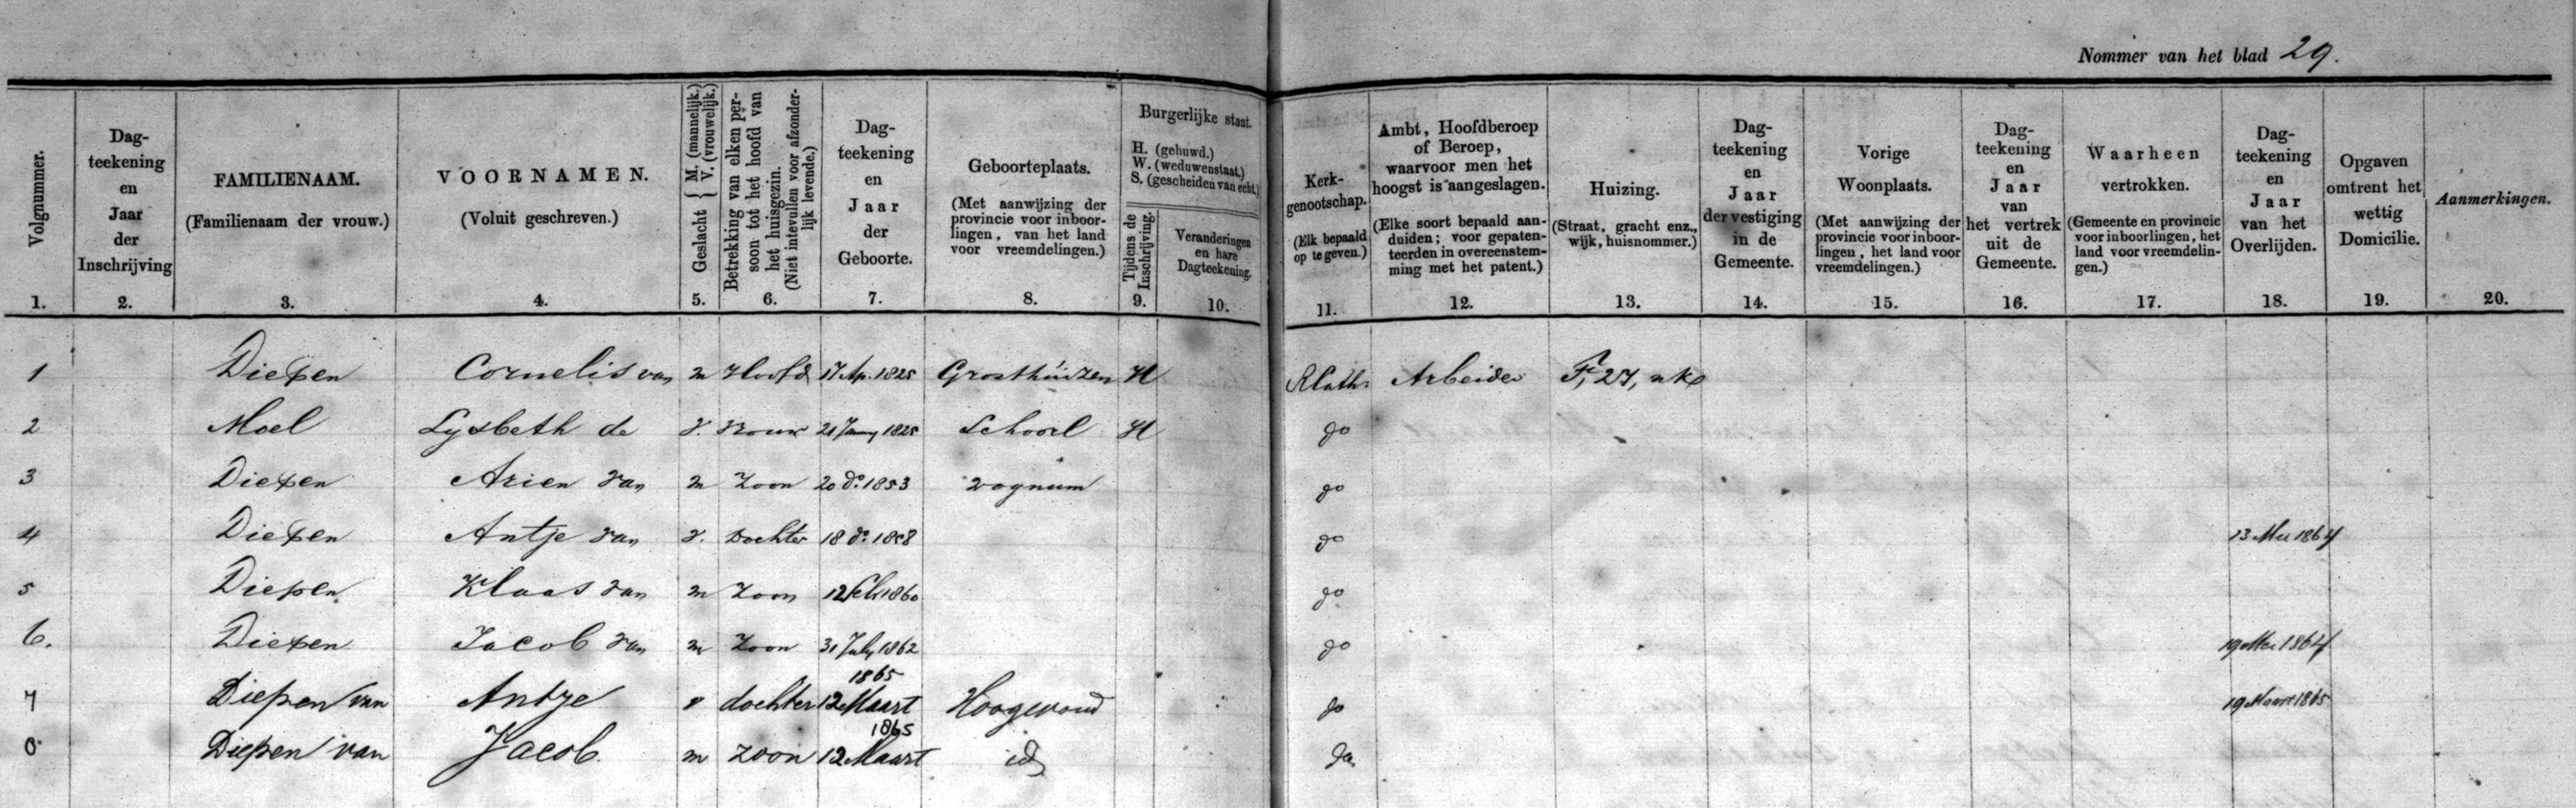 Nommer van het blad 29.
Volgnummer. 1.
Dag-teekening en Jaar der Inschrijving 2.
FAMILIENAAM. (Familienaam der vrouw.) 3.
VOORNAMEN. (Voluit geschreven.) 4.
Geslacht { M. (mannelijk.) V. (vrouwelijk.) 5.
Betrekking van elken per-soon tot het hoofd van het huisgezin. (Niet intevullen voor afzonder-lijk levende.) 6.
Dag-teekening en Jaar der Geboorte. 7.
Geboorteplaats. (Met aanwijzing der provincie voor inboor-lingen, van het land voor vreemdelingen.) 8.
Burgerlijke staat. H. (gehuwd.) W. (weduwenstaat.) S. (gescheiden van echt.)
Tijdens de Inschrijving. 9.
Veranderingen en hare Dagteekening. 10.
Kerk-genootschap. (Elk bepaald op te geven.) 11.
Ambt, Hoofdberoep of Beroep, waarvoor men het hoogst is aangeslagen. (Elke soort bepaald aan-duiden; voor gepaten-teerden in overeenstem-ming met het patent.) 12.
Huizing. (Straat, gracht enz., wijk, huisnommer.) 13.
Dag-teekening en Jaar der vestiging in de Gemeente. 14.
Vorige Woonplaats. (Met aanwijzing der provincie voor inboor-lingen, het land voor vreemdelingen.) 15.
Dag-teekening en Jaar van het vertrek uit de Gemeente. 16.
Waarheen vertrokken. (Gemeente en provincie voor inboorlingen, het land voor vreemdelin-gen.) 17.
Dag-teekening en Jaar van het Overlijden. 18.
Opgaven omtrent het wettig Domicilie. 19.
Aanmerkingen. 20.
1 Diepen Cornelis van m Hoofd 17 Ap. 1825 Grosthuizen H RCath. Arbeider F, 27,
2 Moel Lysbeth de v. vrouw 21 1825 Schoorl H do
3 Diepen Arien van m Zoon 20 do. 1853 wognum do
4 Diepen Antje van v. Dochter 18 do. 1858 do 13 Mei 1864
5 Diepen Klaas van m Zoon 12 Feb 1860 do
6. Diepen Jacob van m Zoon 31 July 1862 do 19 Mei 1864
7 Diepen van Antje v dochter 12 Maart 1865 Hoogwoud do 19 Maart 1865
8 Diepen van Jacob m zoon 12 Maart 1865 id do